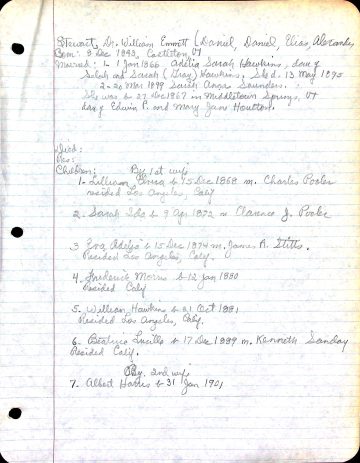 Stewart, Dr. William Emmett (Daniel, Daniel, Elias, Alexander
Born: 8 Dec 1843, Castleton, VT
Married: 1- 1 Jan 1866 Adelia Sarah Hawkins, dau of
and Sarah (Gray) Hawkins. She d. 13 May 1895
2- 20 Mar 1899 Sarah Anna Saunders.
She was b 27 Dec 1867 in Middletown Springs, VT
dau of Edwin P. and Mary Jane Houtton.
Died:
Res:
Children: By 1st wife
1- Lillian b 15 Dec 1868 m. Charles Pooler
resided Los Angeles, Calif
2. Sarah Ida b 9 Apr 1872 m Clarence J. Pooler
3 Eva Adelia b 15 Dec 1874 m. James R. Stitts.
Resided Los Angeles, Calif.
4. Frederick Morris b 12 Jan 1880
Resided Calif
5. William Hawkins b 31 Oct 1881
Resided Los Angeles, Calif.
6. Beatrice Lucille b 17 Dec 1889 m. Kenneth Sanday
Resided Calif.
By 2nd wife
7. Albert Harris b 31 Jan 1901